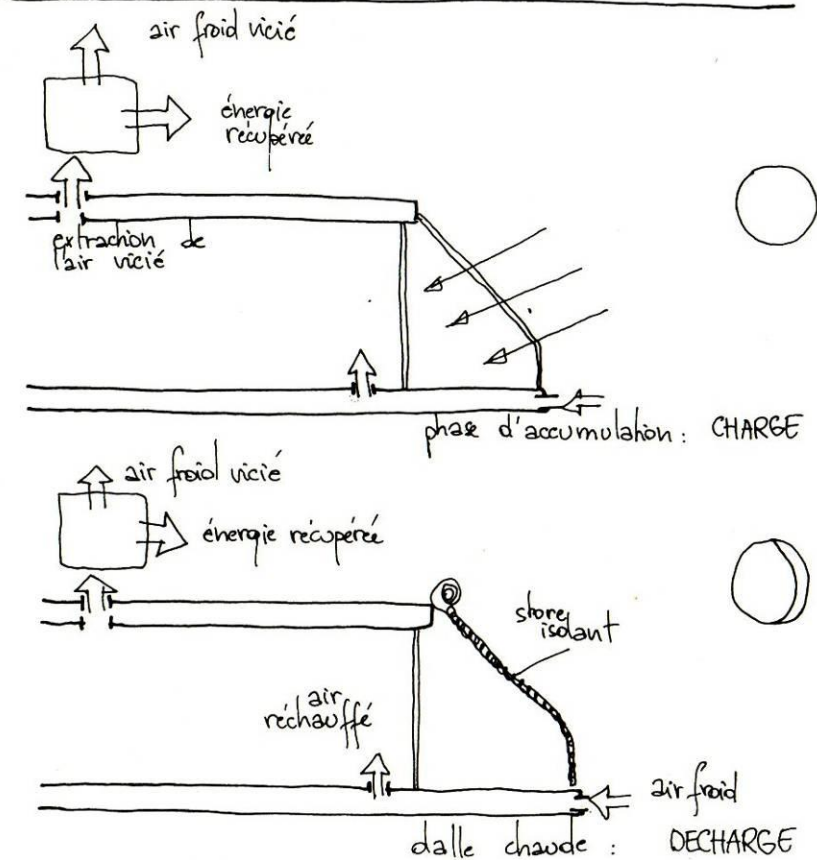 air froid vicié
énergie
récupérée
extraction de
l'air vicié
phase d'accumulation : CHARGE
air froid vicié
énergie récupérée
store
isolant
air
réchauffé
air froid
dalle chaude : DECHARGE